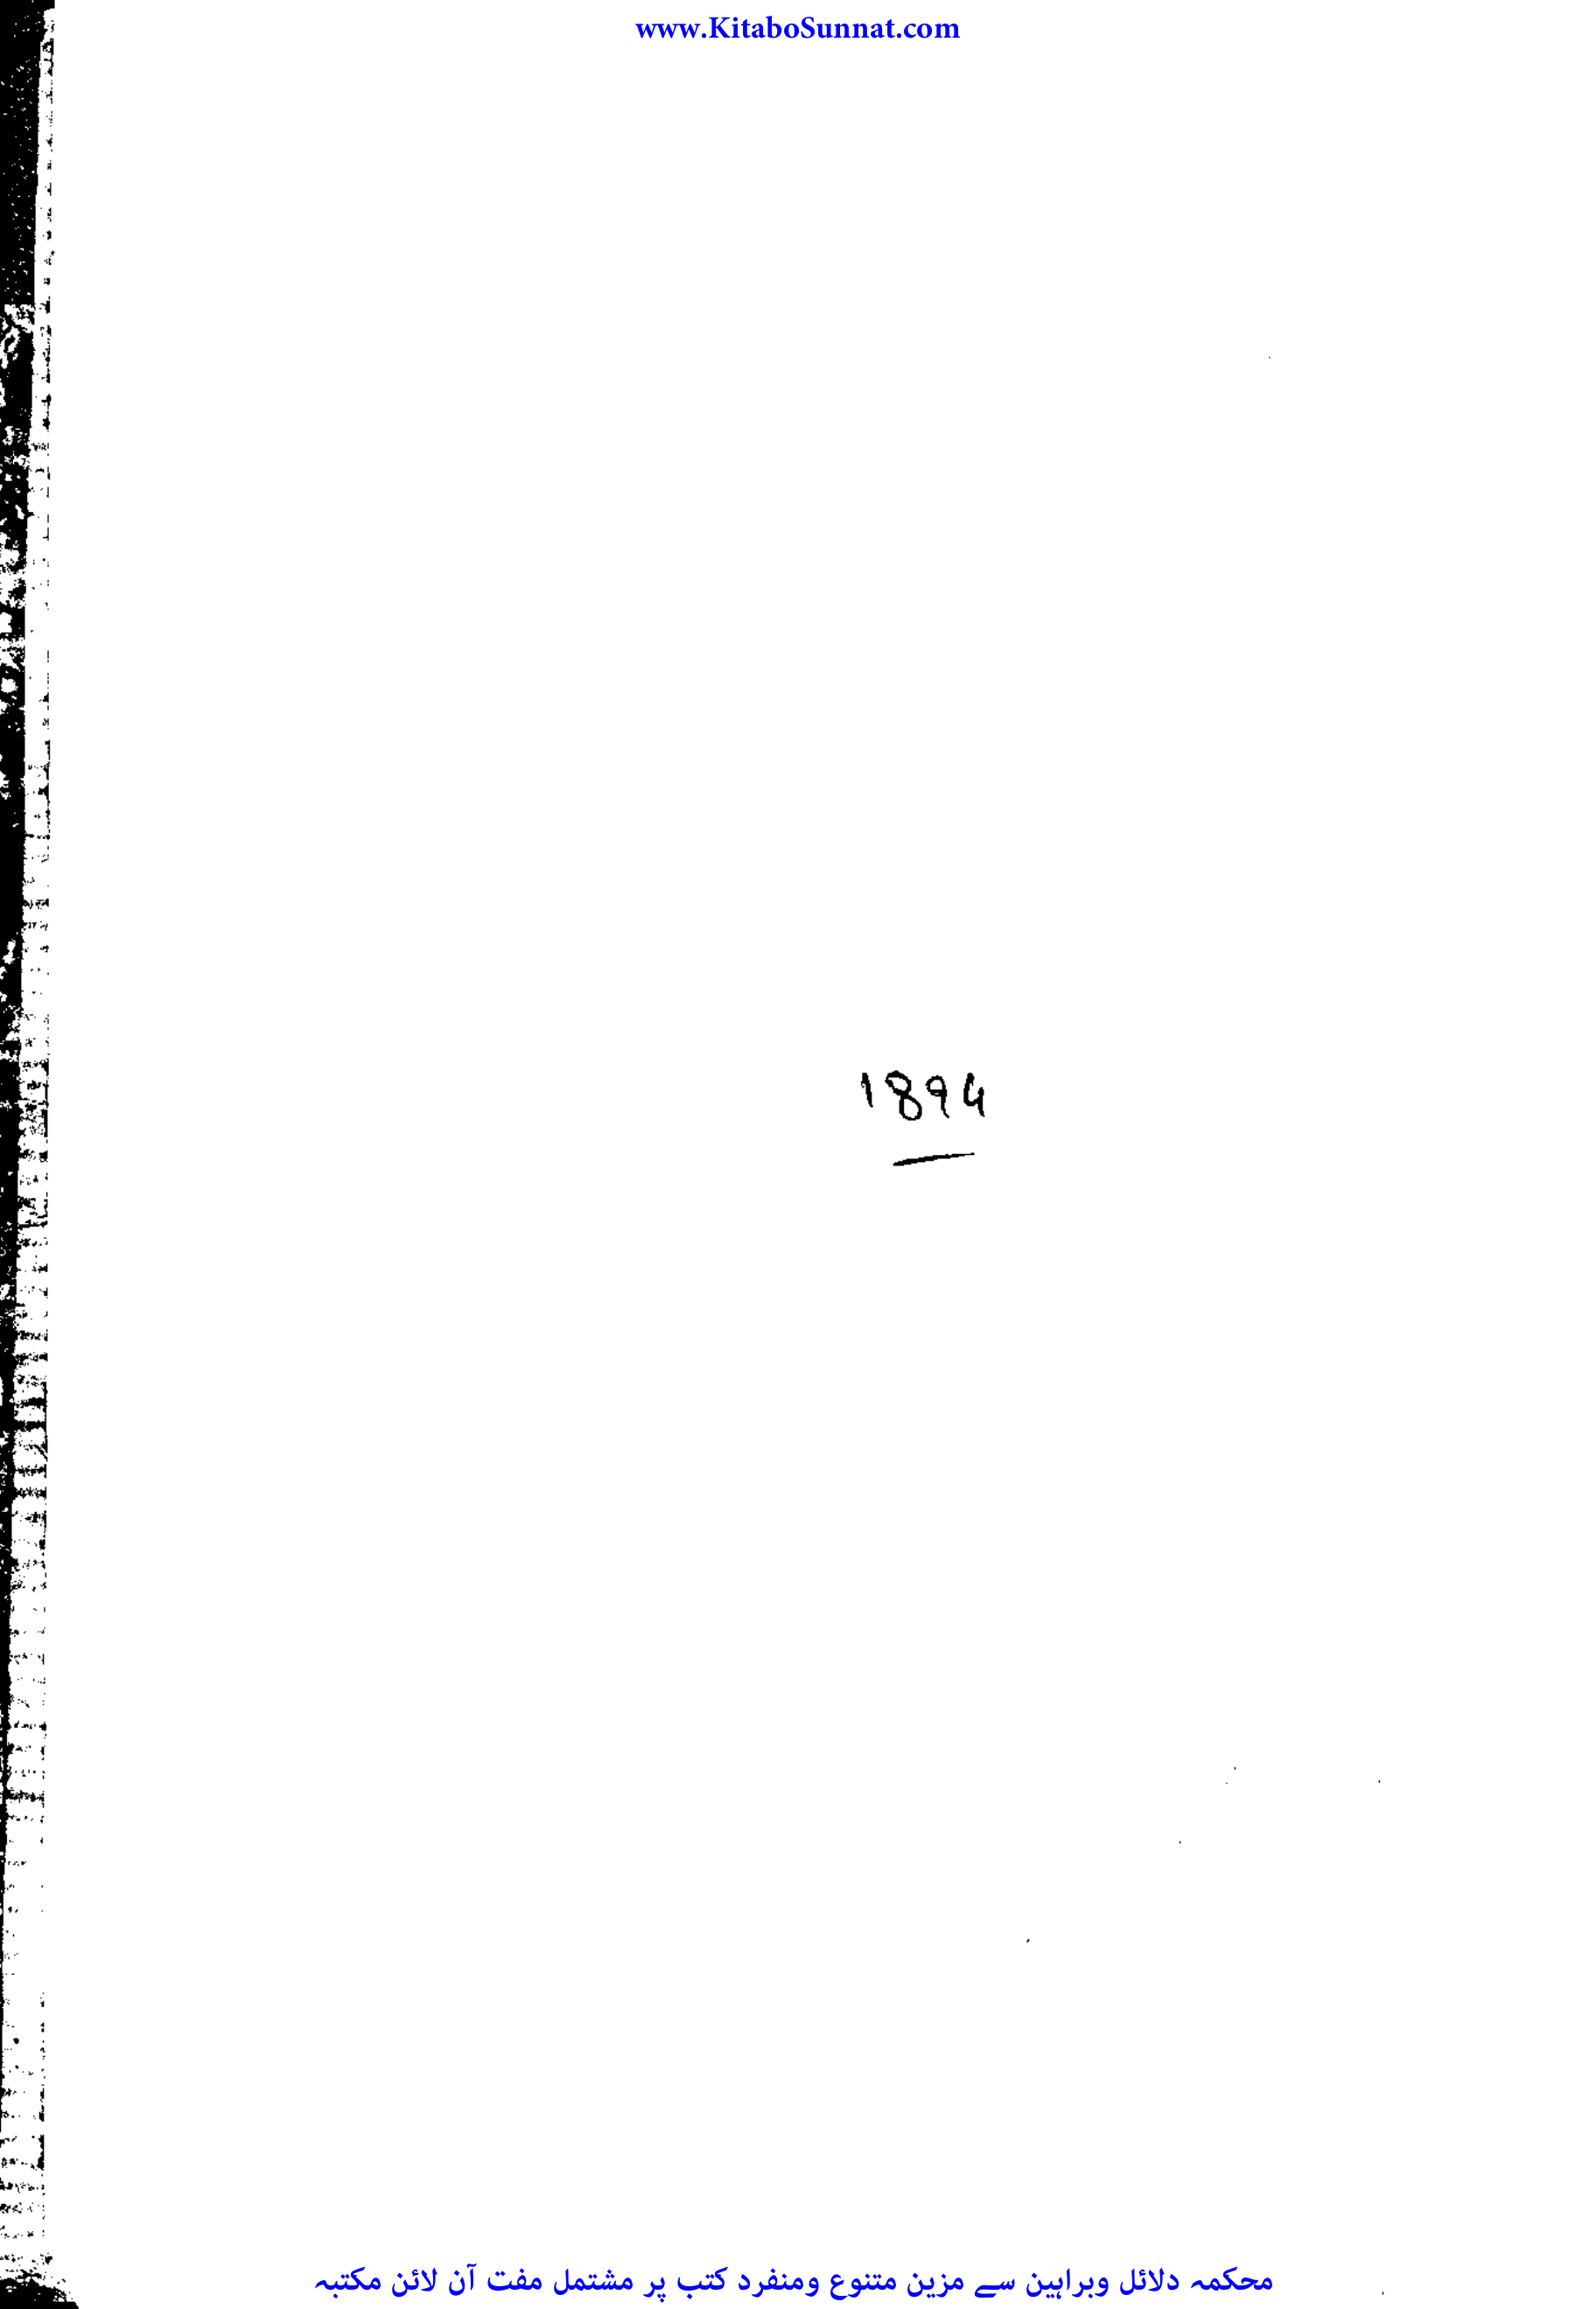 www.KitaboSunnat.com
1894
محکمہ دلائل وبراہین سے مزین متنوع ومنفرد کتب پر مشتمل مفت آن لائن مکتبہ